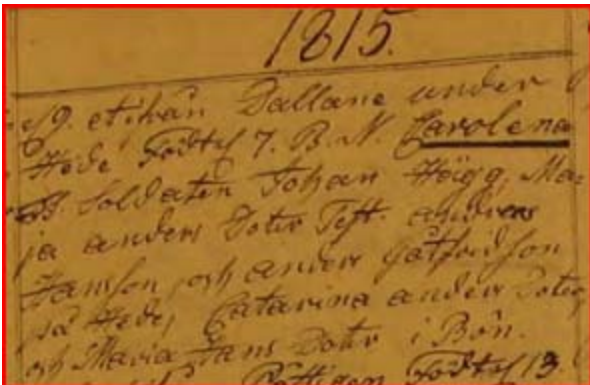 1815.
9. et ifrån Dallane under
Hede Födt d 7. B. N. Carolena
Soldaten Johan Högg, Ma=
ja anders Doter Test. anders
Hanson, och anders Götfridson
på Hede, Catarina anders Doter
och Maria Hans Dotr i Bön.
Födt d 13.